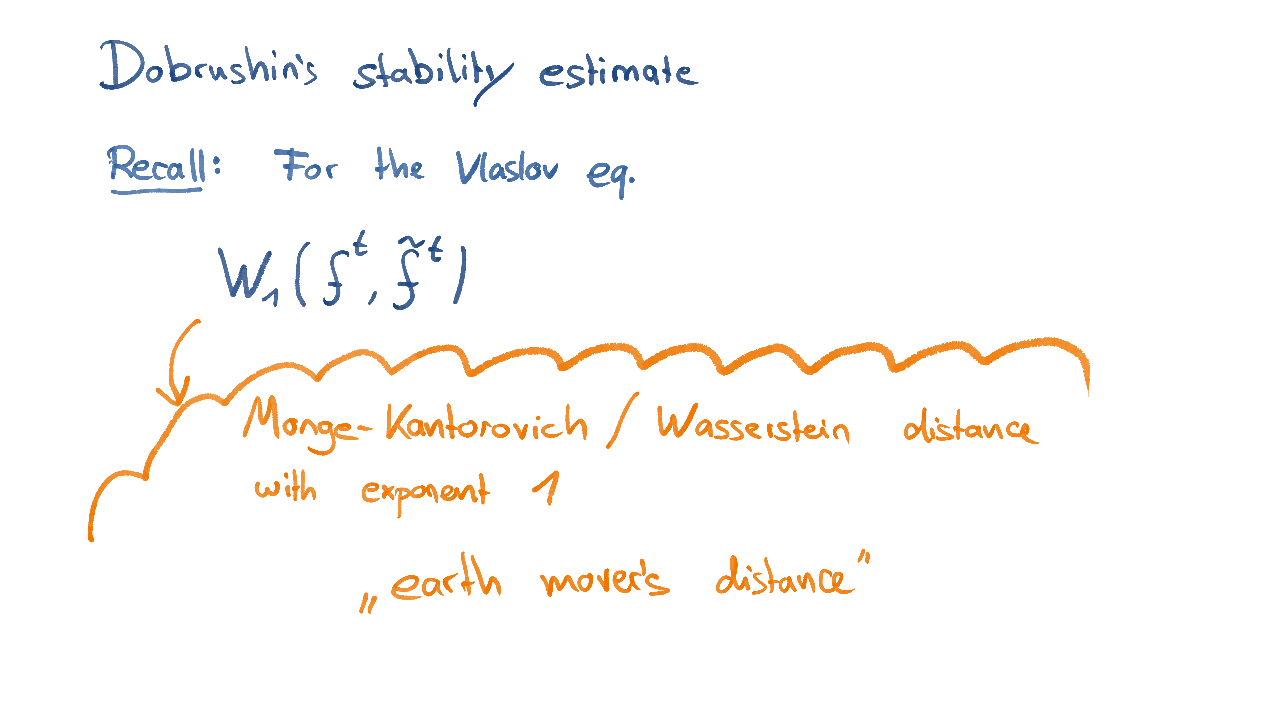 Dobrushin's stability estimate
Recall: For the Vlaslov eq.
W₁(fᵗ, f̃ᵗ)
Monge-Kantorovich / Wasserstein distance
with exponent 1
„earth mover's distance"